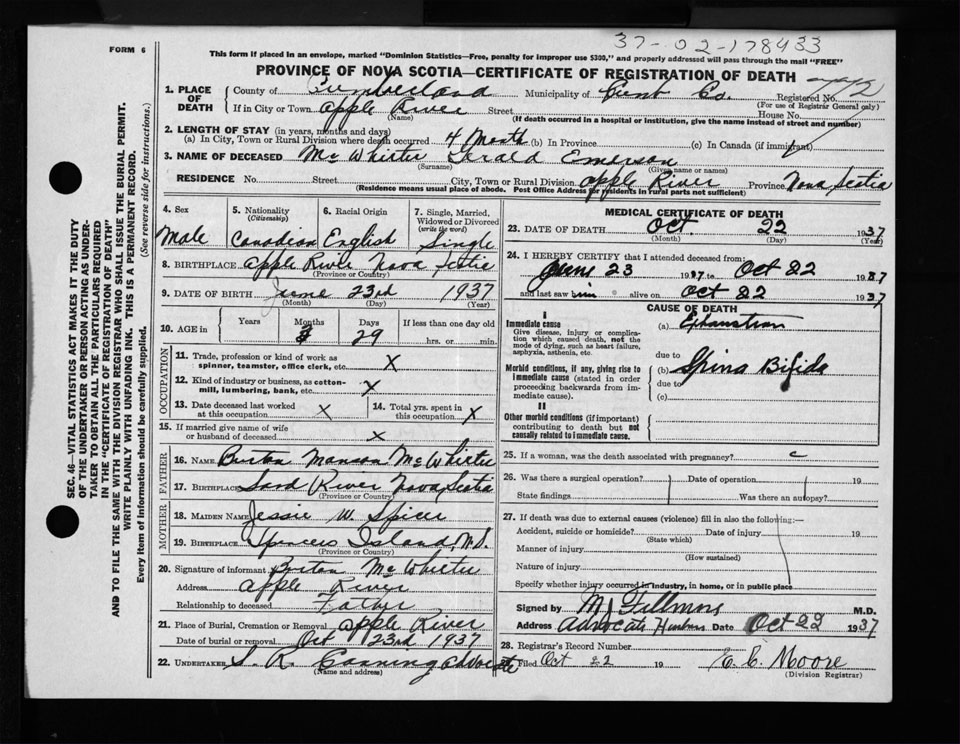 37-02-178433
FORM 6
This form if placed in an envelope, marked "Dominion Statistics—Free, penalty for improper use $300," and properly addressed will pass through the mail "FREE"
PROVINCE OF NOVA SCOTIA—CERTIFICATE OF REGISTRATION OF DEATH
1. PLACE OF DEATH County of Cumberland Municipality of Cumb Co. Registered No.
(For use of Registrar General only)
If in City or Town Apple River Street House No.
(Name) (If death occurred in a hospital or institution, give the name instead of street and number)
2. LENGTH OF STAY (in years, months and days)
(a) In City, Town or Rural Division where death occurred 4 Month (b) In Province (c) In Canada (if immigrant)
3. NAME OF DECEASED McWhirter Gerald Emerson
(Surname) (Given name or names)
RESIDENCE No. Street City, Town or Rural Division Apple River Province Nova Scotia
(Residence means usual place of abode. Post Office Address for residents in rural parts not sufficient)
4. Sex Male
5. Nationality (Citizenship) Canadian
6. Racial Origin English
7. Single, Married, Widowed or Divorced (write the word) Single
8. BIRTHPLACE Apple River Nova Scotia
(Province or Country)
9. DATE OF BIRTH June 23rd 1937
(Month) (Day) (Year)
10. AGE in Years Months Days If less than one day
29 hrs. or min.
OCCUPATION
11. Trade, profession or kind of work as spinner, teamster, office clerk, etc. X
12. Kind of industry or business, as cotton-mill, lumbering, bank, etc. X
13. Date deceased last worked at this occupation X
14. Total yrs. spent in this occupation X
15. If married give name of wife or husband of deceased X
FATHER
16. Name Burton Manson McWhirter
17. Birthplace Sand River Nova Scotia
(Province or Country)
MOTHER
18. MAIDEN NAME Jessie W. Spicer
19. BIRTHPLACE Spencers Island, N.S.
(Province or Country)
20. Signature of informant Burton McWhirter
Address Apple River
Relationship to deceased Father
21. Place of Burial, Cremation or Removal Apple River
Date of burial or removal Oct 23rd 1937
22. UNDERTAKER S. R. Canning Advocate
(Name and address)
MEDICAL CERTIFICATE OF DEATH
23. DATE OF DEATH Oct. 22 1937
(Month) (Day) (Year)
24. I HEREBY CERTIFY that I attended deceased from:
June 23 1937 to Oct 22 1937
and last saw him alive on Oct 22 1937
CAUSE OF DEATH
I
Immediate cause
Give disease, injury or complication which caused death, not the mode of dying, such as heart failure, asphyxia, asthenia, etc.
(a) Exhaustion
due to
Morbid conditions, if any, giving rise to immediate cause (stated in order proceeding backwards from immediate cause).
(b) Spina Bifida
due to
(c)
II
Other morbid conditions (if important) contributing to death but not causally related to immediate cause.
25. If a woman, was the death associated with pregnancy?
26. Was there a surgical operation? Date of operation 19
State findings Was there an autopsy?
27. If death was due to external causes (violence) fill in also the following:—
Accident, suicide or homicide? Date of injury 19
(State which)
Manner of injury
(How sustained)
Nature of injury
Specify whether injury occurred in industry, in home, or in public place
Signed by M.D.
Address Advocate Harbour Date Oct 22 1937
28. Registrar's Record Number
Filed Oct 22 19 E. E. Moore
(Division Registrar)
SEC. 46—VITAL STATISTICS ACT MAKES IT THE DUTY
OF THE UNDERTAKER OR PERSON ACTING AS UNDER-
TAKER TO OBTAIN ALL THE PARTICULARS REQUIRED
IN THE "CERTIFICATE OF REGISTRATION OF DEATH"
AND TO FILE THE SAME WITH THE DIVISION REGISTRAR WHO SHALL ISSUE THE BURIAL PERMIT.
WRITE PLAINLY WITH UNFADING INK. THIS IS A PERMANENT RECORD.
Every item of information should be carefully supplied. (See reverse side for instructions.)